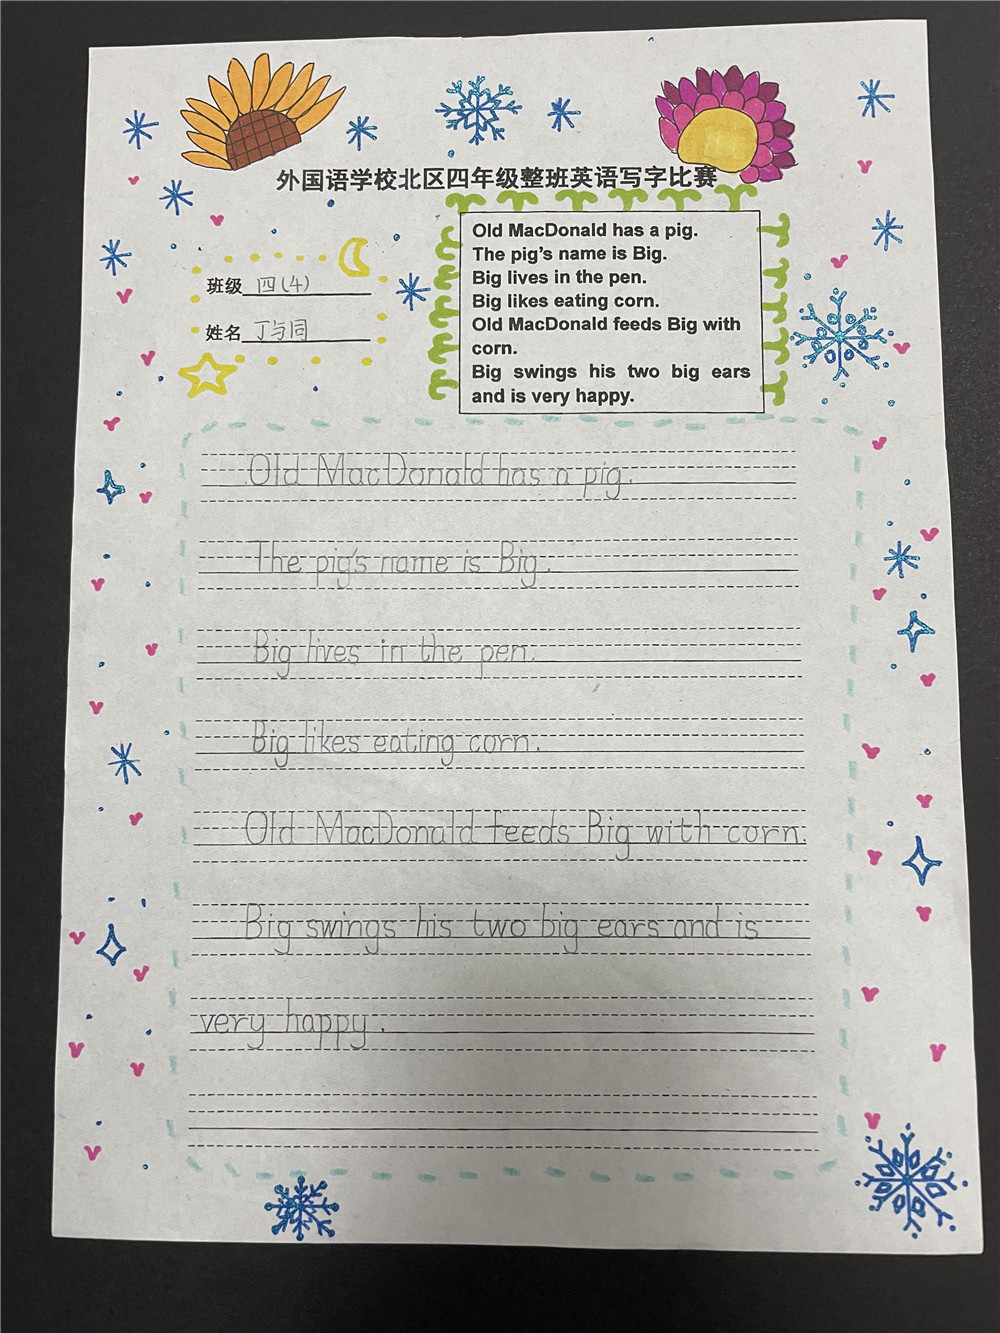 外国语学校北区四年级整班英语写字比赛
Old MacDonald has a pig.
The pig's name is Big.
Big lives in the pen.
Big likes eating corn.
Old MacDonald feeds Big with
corn.
Big swings his two big ears
and is very happy.
班级 四(4)
姓名 丁与同
Old MacDonald has a pig.
The pig's name is Big.
Big lives in the pen.
Big likes eating corn.
Old MacDonald feeds Big with corn.
Big swings his two big ears and is
very happy.